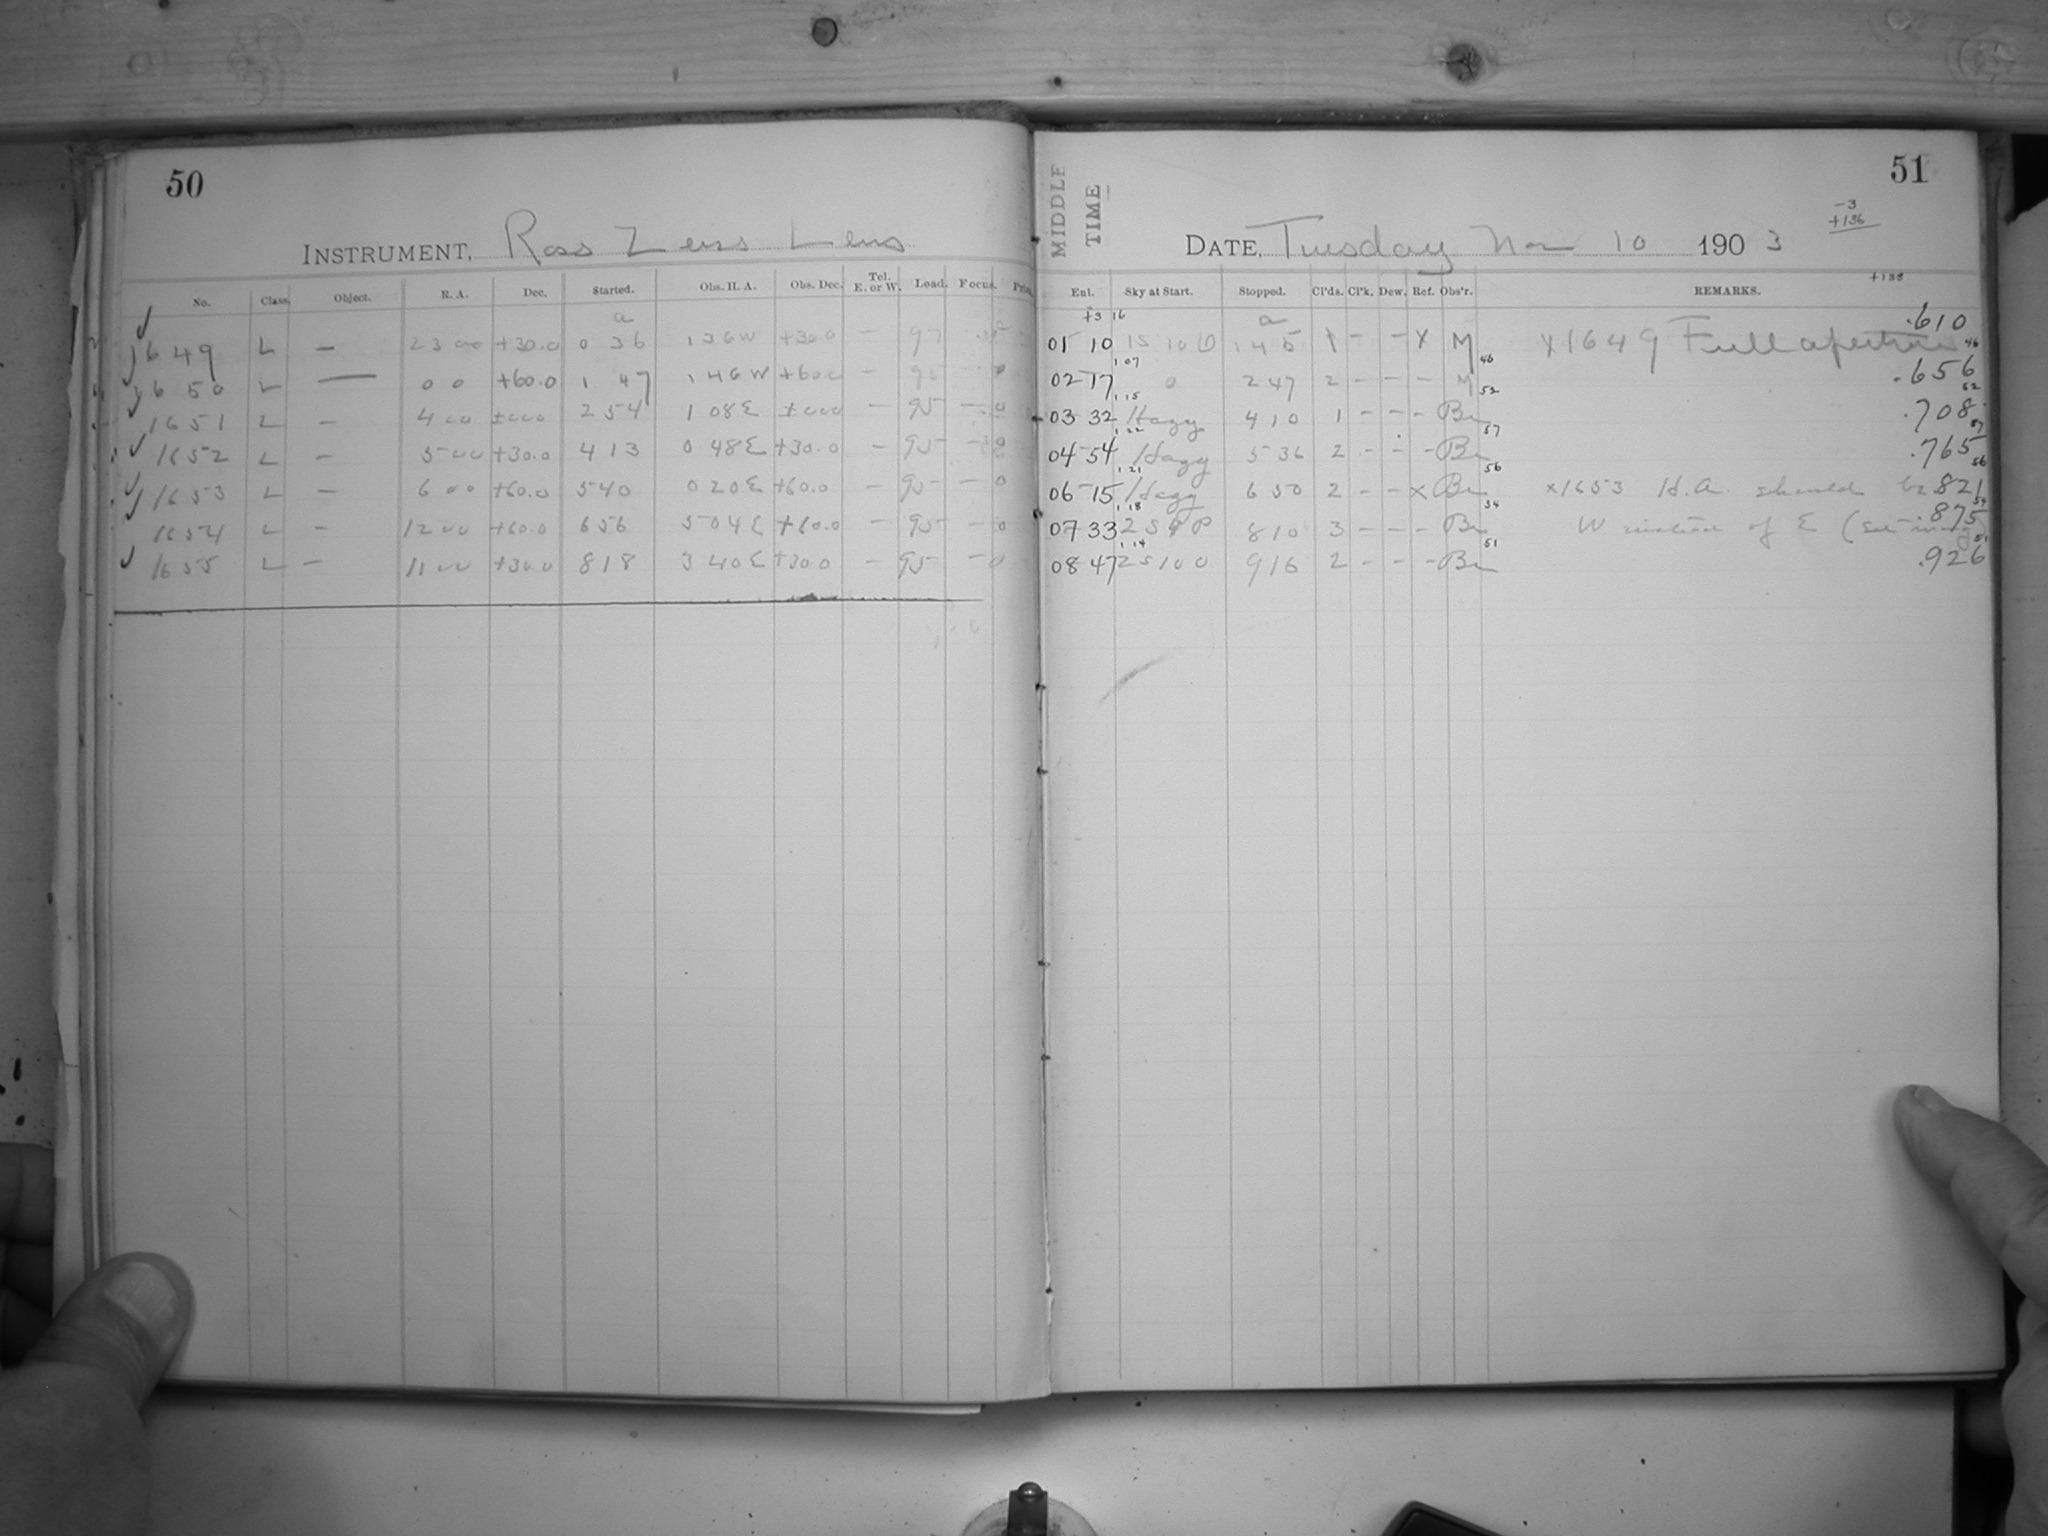 50
INSTRUMENT, Ross Zeiss Lens
No. Class. Object. R. A. Dec. Started. Obs. H. A. Obs. Dec. Tel. E. or W. Load. Focus.
a
1649 L — 23 00 +30.0 0 36 1 36 W +30.0 — 97
1650 L — 0 0 +60.0 1 47 1 46 W +60.0 — 95 0
1651 L — 4 00 ±000 2 54 1 08 E ±000 — 95 — 0
1652 L — 5 00 +30.0 4 13 0 48 E +30.0 — 95
1653 L — 6 00 +60.0 5 40 0 20 E +60.0 — 95 — 0
1654 L — 12 00 +60.0 6 56 5 04 E +60.0 — 95 — 0
1655 L — 11 00 +30.0 8 18 3 40 E +30.0 — 95 — 0
51
MIDDLE TIME
-3
+136
DATE, Tuesday Nov 10 1903
+133
Ent. Sky at Start. Stopped. Cl'ds. Cl'k. Dew. Ref. Obs'r. REMARKS.
+3 16 a
01 10 1S 10 0 1 45 1 - - X M X1649 Full aperture .610
1 07 46 46
02 17 0 2 47 2 - - - M .656
1 15 52 52
03 32 Hazy 4 10 1 - - - Br .708
1 22 57 57
04 54 Hazy 5 36 2 - - - Br .765
1 21 56 56
06 15 Hazy 6 50 2 - - X Br X1653 H.A. should be .821
1 18 54 54
07 33 2 S 9 P 8 10 3 - - - Br W instead of E .875
1 14 51 51
08 47 2 S 10 0 9 16 2 - - - Br .926